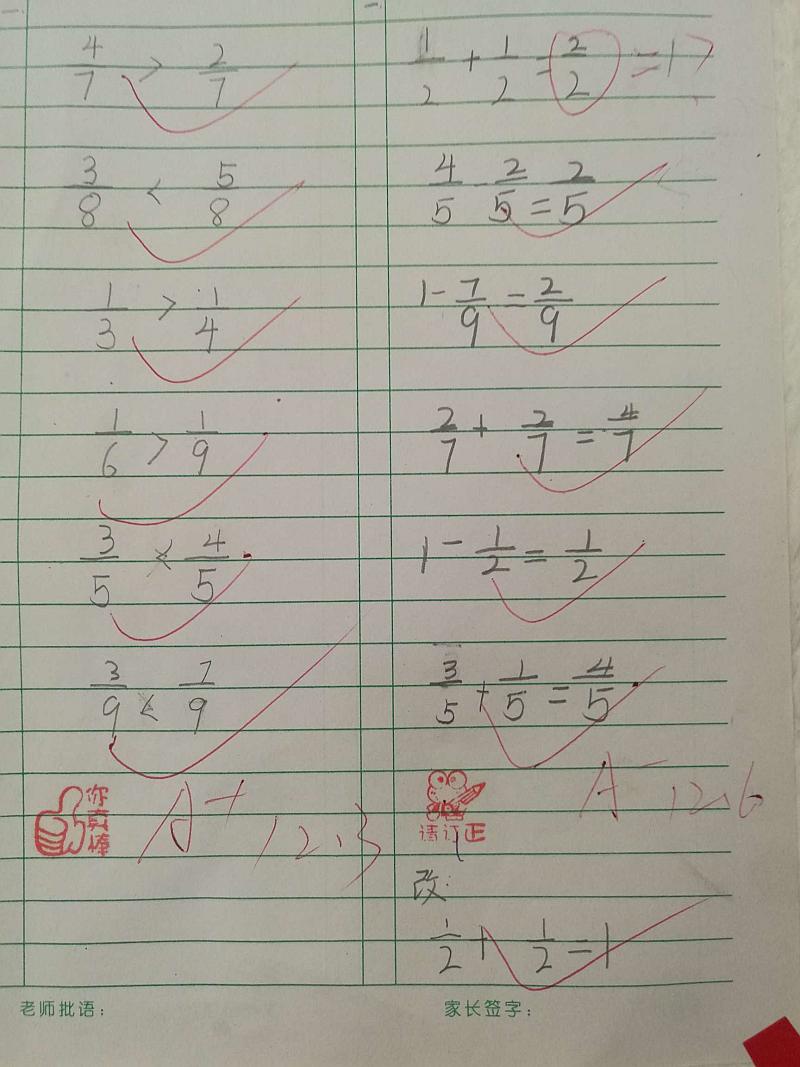 4/7 > 2/7
3/8 < 5/8
1/3 > 1/4
1/6 > 1/9
3/5 < 4/5
3/9 < 7/9
你真棒
A+ 12.3
1/2 + 1/2 = 2/2 =1?
4/5 - 2/5 = 2/5
1 - 7/9 = 2/9
2/7 + 2/7 = 4/7
1 - 1/2 = 1/2
3/5 + 1/5 = 4/5
请订正
A- 12.6
改:
1/2 + 1/2 = 1
老师批语:
家长签字: